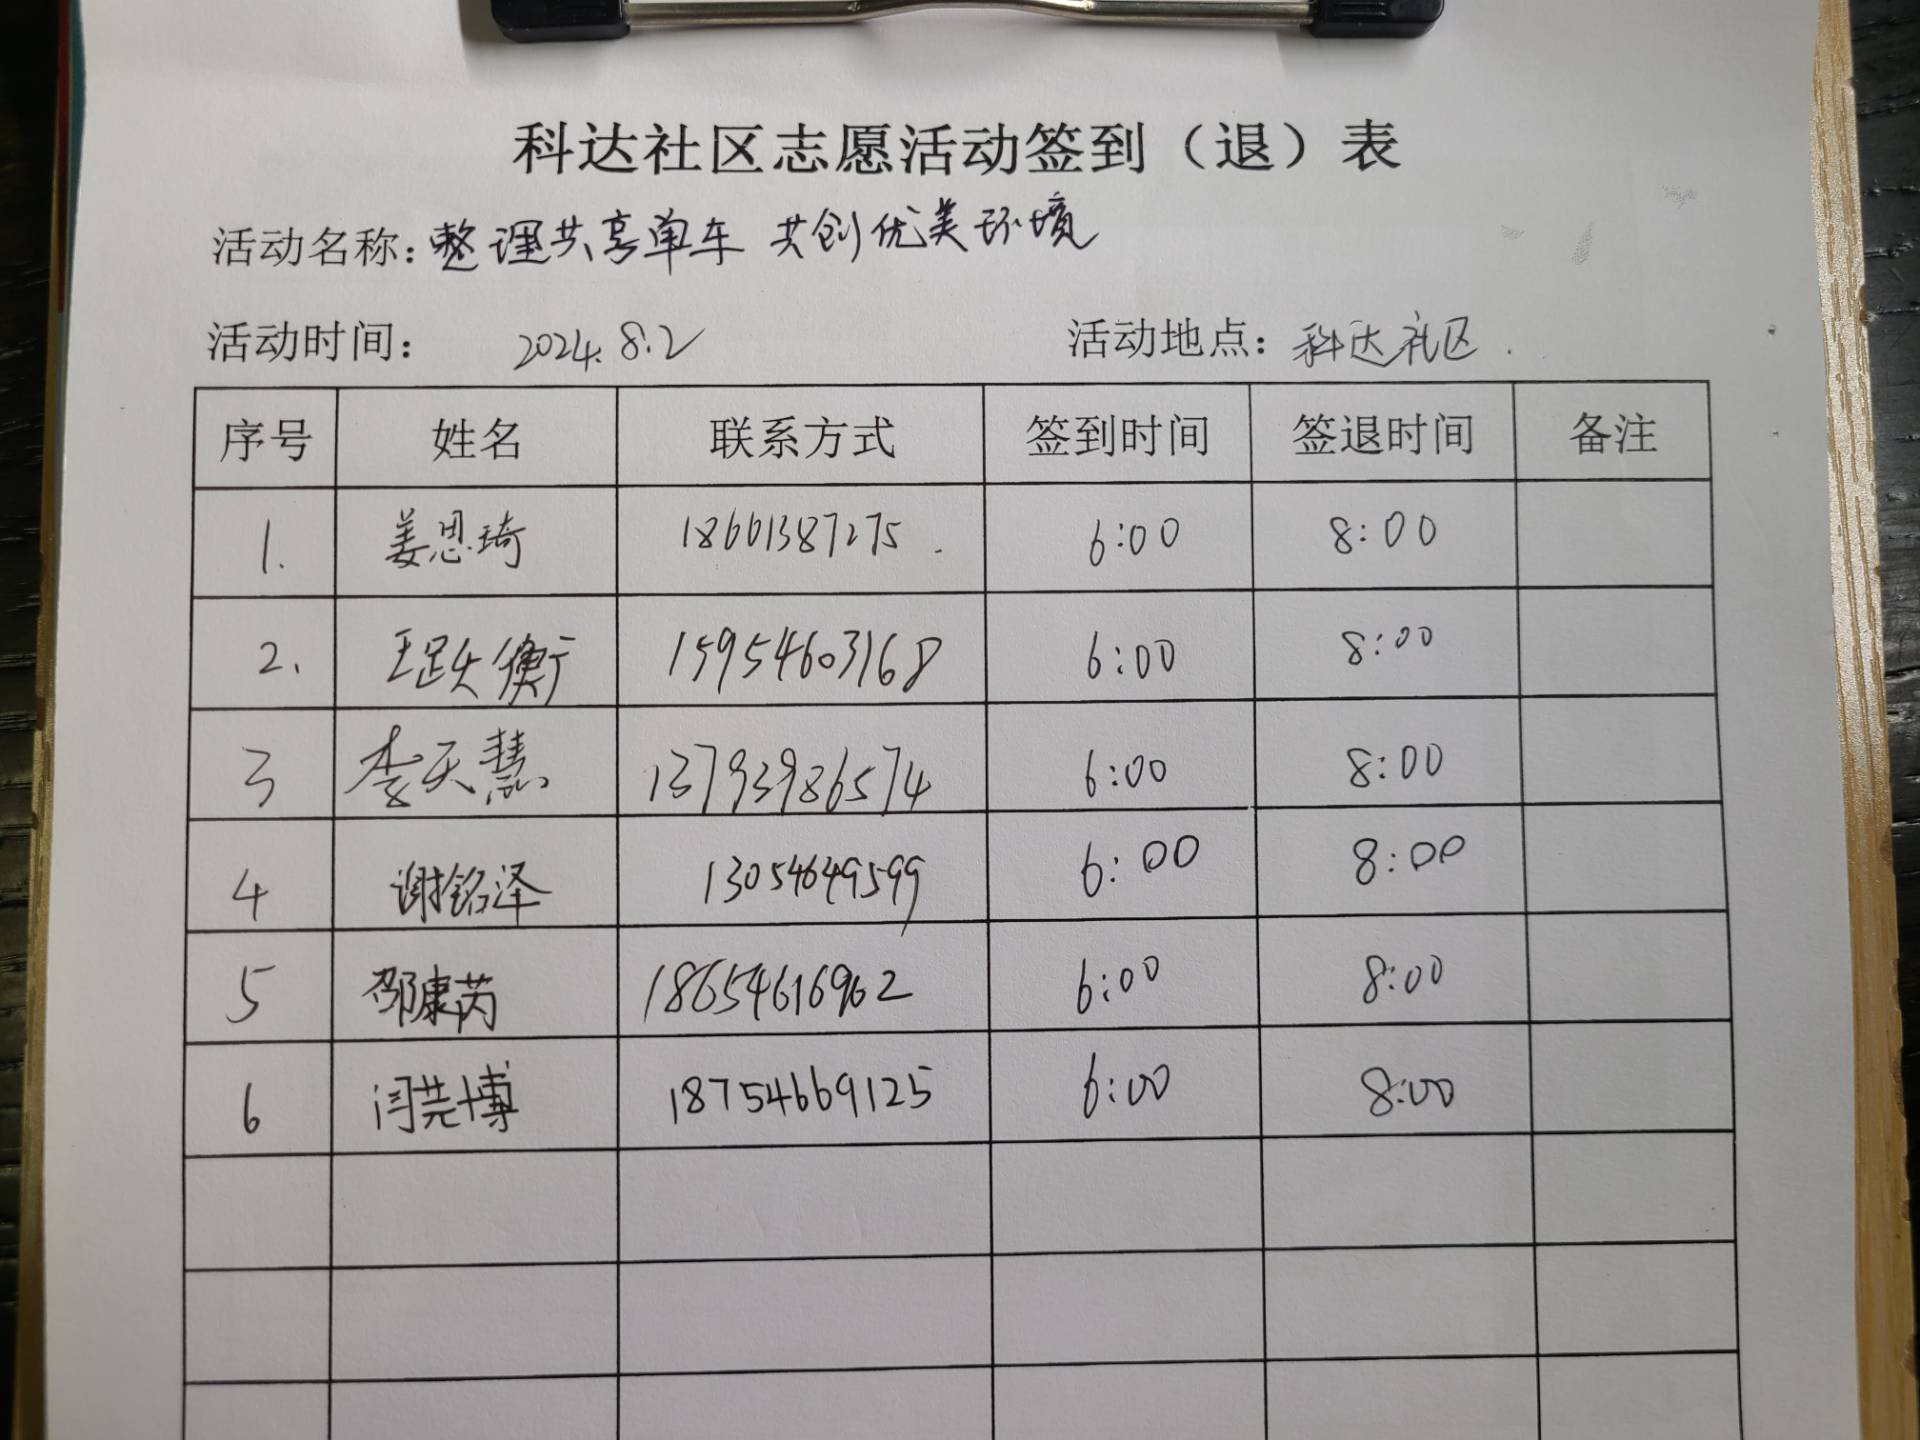 科达社区志愿活动签到（退）表
活动名称：整理共享单车 共创优美环境
活动时间： 2024.8.2 活动地点：科达社区.
序号 姓名 联系方式 签到时间 签退时间 备注
1. 姜思琦 18661387275. 6:00 8:00
2. 王跃衡 15954603168 6:00 8:00
3 李天慧 13793986574 6:00 8:00
4 谢铭泽 13054649599 6:00 8:00
5 邵康芮 18654616962 6:00 8:00
6 闫芸博 18754669125 6:00 8:00